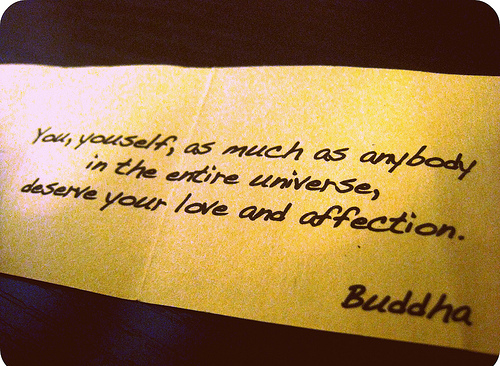 You, youself, as much as anybody
in the entire universe,
deserve your love and affection.
Buddha